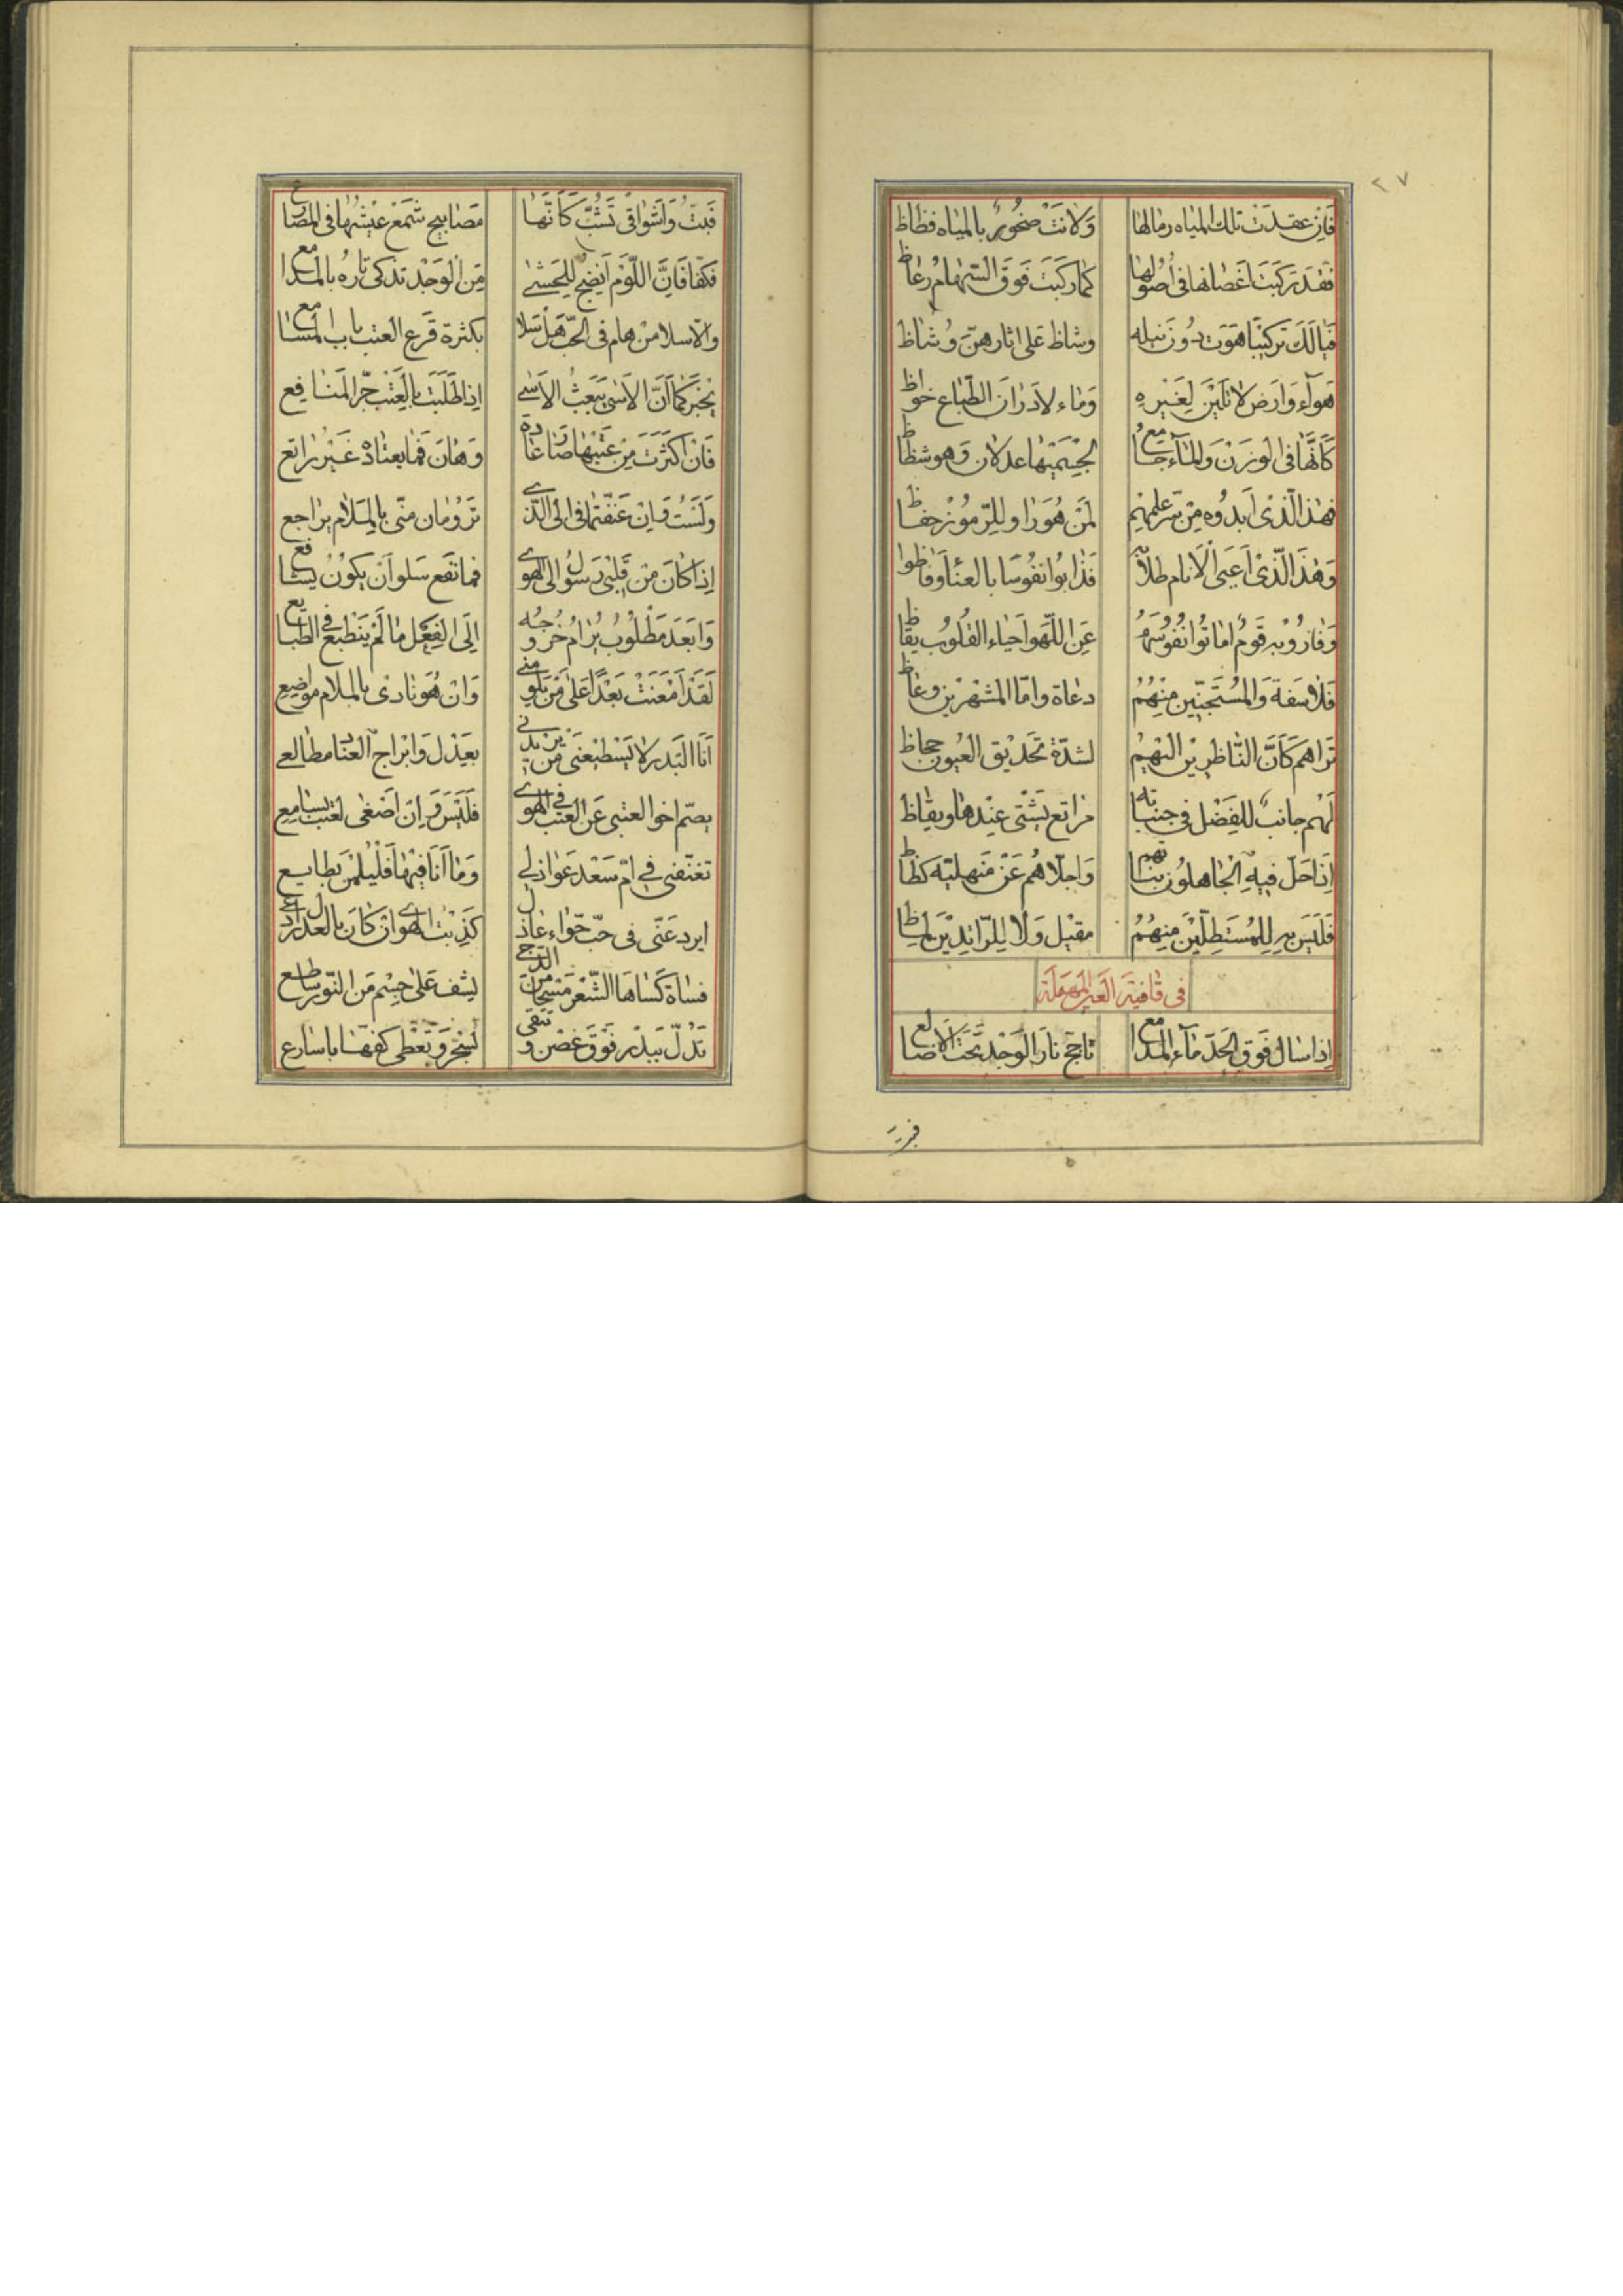 ٢٧
فَاِنْ عقدَتْ تلك المياه رمالها وَلانَتْ صخُورٌ بالمياه فظاظ
فقَد رَكبَتْ اغصانها فى اُصُولها كما ركبَتْ فَوقَ السّهامُ رعاظ
فيالَكَ تركيبًا هَوَت دُونَ نيله وشاظ على اثارهنَّ وُشاظ
هَوآء وَارض لا تلَيْن لِغَيْرِه وَماء لادَران الطّباع خواظ
كانّها فى الوَزنْ وَالمآء جامعٌ لجِسمَيْها عدلان وَهو شظاظ
فهٰذا الّذى اَبدوُه مِنْ سرّ علمهم لمَنْ هُوَ راو للِرّمُوز حفاظ
وَهٰذا الّذى اَعيَى الْانام طلاّبه فَذابوُا نفُوسًا بالعنا وَفاظوا
وَفازوُا بهِ قَومٌ اماتُوا نفُوسَهُمْ عَنِ اللّهو احياء القلُوب يقاظ
فَلاسَفة وَالمسُتَجنّين منِهُمُ دعاة وامّا المشهرين وعاظ
تَراهم كَاَنَّ النّاظرين اليَهمُ لشدّة تحَديق العُيون جحاظ
لَهُم جانبٌ للفَضل فى جنباته مراتع يَشتى عِنْدها ويقاظ
اِذا حَلّ فيهِ الْجاهلوُن بنابهم وَاجلاهُم عَنْ مَنهلَيْه كظاظ
فَلَيَس بهِ لِلمُستَظِلّينَ مِنهُمُ مقيْل وَلا للِرّائدِيْن لماظ
فى قافية العَين المهمَلَة
اِذا سال فَوق الخَدّ مآء المدامع تاجّج نار الوَجْد تحَتَ الاضالع
فَبتُّ وَاَشواقى تَشُبّ كانّها مَصابيح شمَع عيْشُهٰا فى المصارع
فكفّا فَاِنَّ اللّوَم اَنضج للِحَشى مِنَ الوَجْد تذكى نارُه بالمَدامع
والاّ سلا من هام فى الحبّ هَل سَلا بكثرة قَرع العتب باب المَسامع
يُخبّر كما اَنّ الاَسىٰ يَبعَثُ الاَسى اِذا طَلَبَت بالعَتْب جّر المَنافع
فَان اَكثَرَت مِن عَتْبها صارَ عادة وَهان فَما يعتاده غَيْرُ راتع
وَلَستُ وَاِنْ عَنّفتما فى الى الّذى تَروُمان منّى بالمَلام براجع
اِذا كانَ مِنْ قَلْبى رَسُولٌ الى الهوى فما نفع سَلو اَنْ يكوُنْ لِشافع
وَابعَدَ مَطْلوُب يُرامُ خُروجُه اِلَى الفِعْل ما لَمْ يَنْطبع فى الطبايع
لَقَدْ اَمْعَنَتْ بَعْدًا عَلى مَن يَلومنى وَانْ هُوَ نادى بالملام مواضِع
اَنَا البَدر لا يَسْطِيعُنى مَن يرَيدنى بعَذل وَابْراج العناد مطالعى
يصّم اخو العتبى عَن العتب فى الهوى فَلَيَس وَاِن اَصْغى لعتب بسامع
تعنّفنى فى اُمّ سَعْد عَواذلى وَما اَنَا فيهٰا فليلُمنَ بطايع
ايردعَنّى فى حبّ حَوّاء عاذل كذِبْتُ الهوى ان كانَ بالعذل رادعى
فساة كَساهَا الشّعْر مَسِحان من الدّجى ليشف عَلى جِسْم مَن النّور ساطع
تدُلّ ببَدْر فَوْقَ غصْن وتتقى لسِحْر وَتعْطى كفّها باسارع